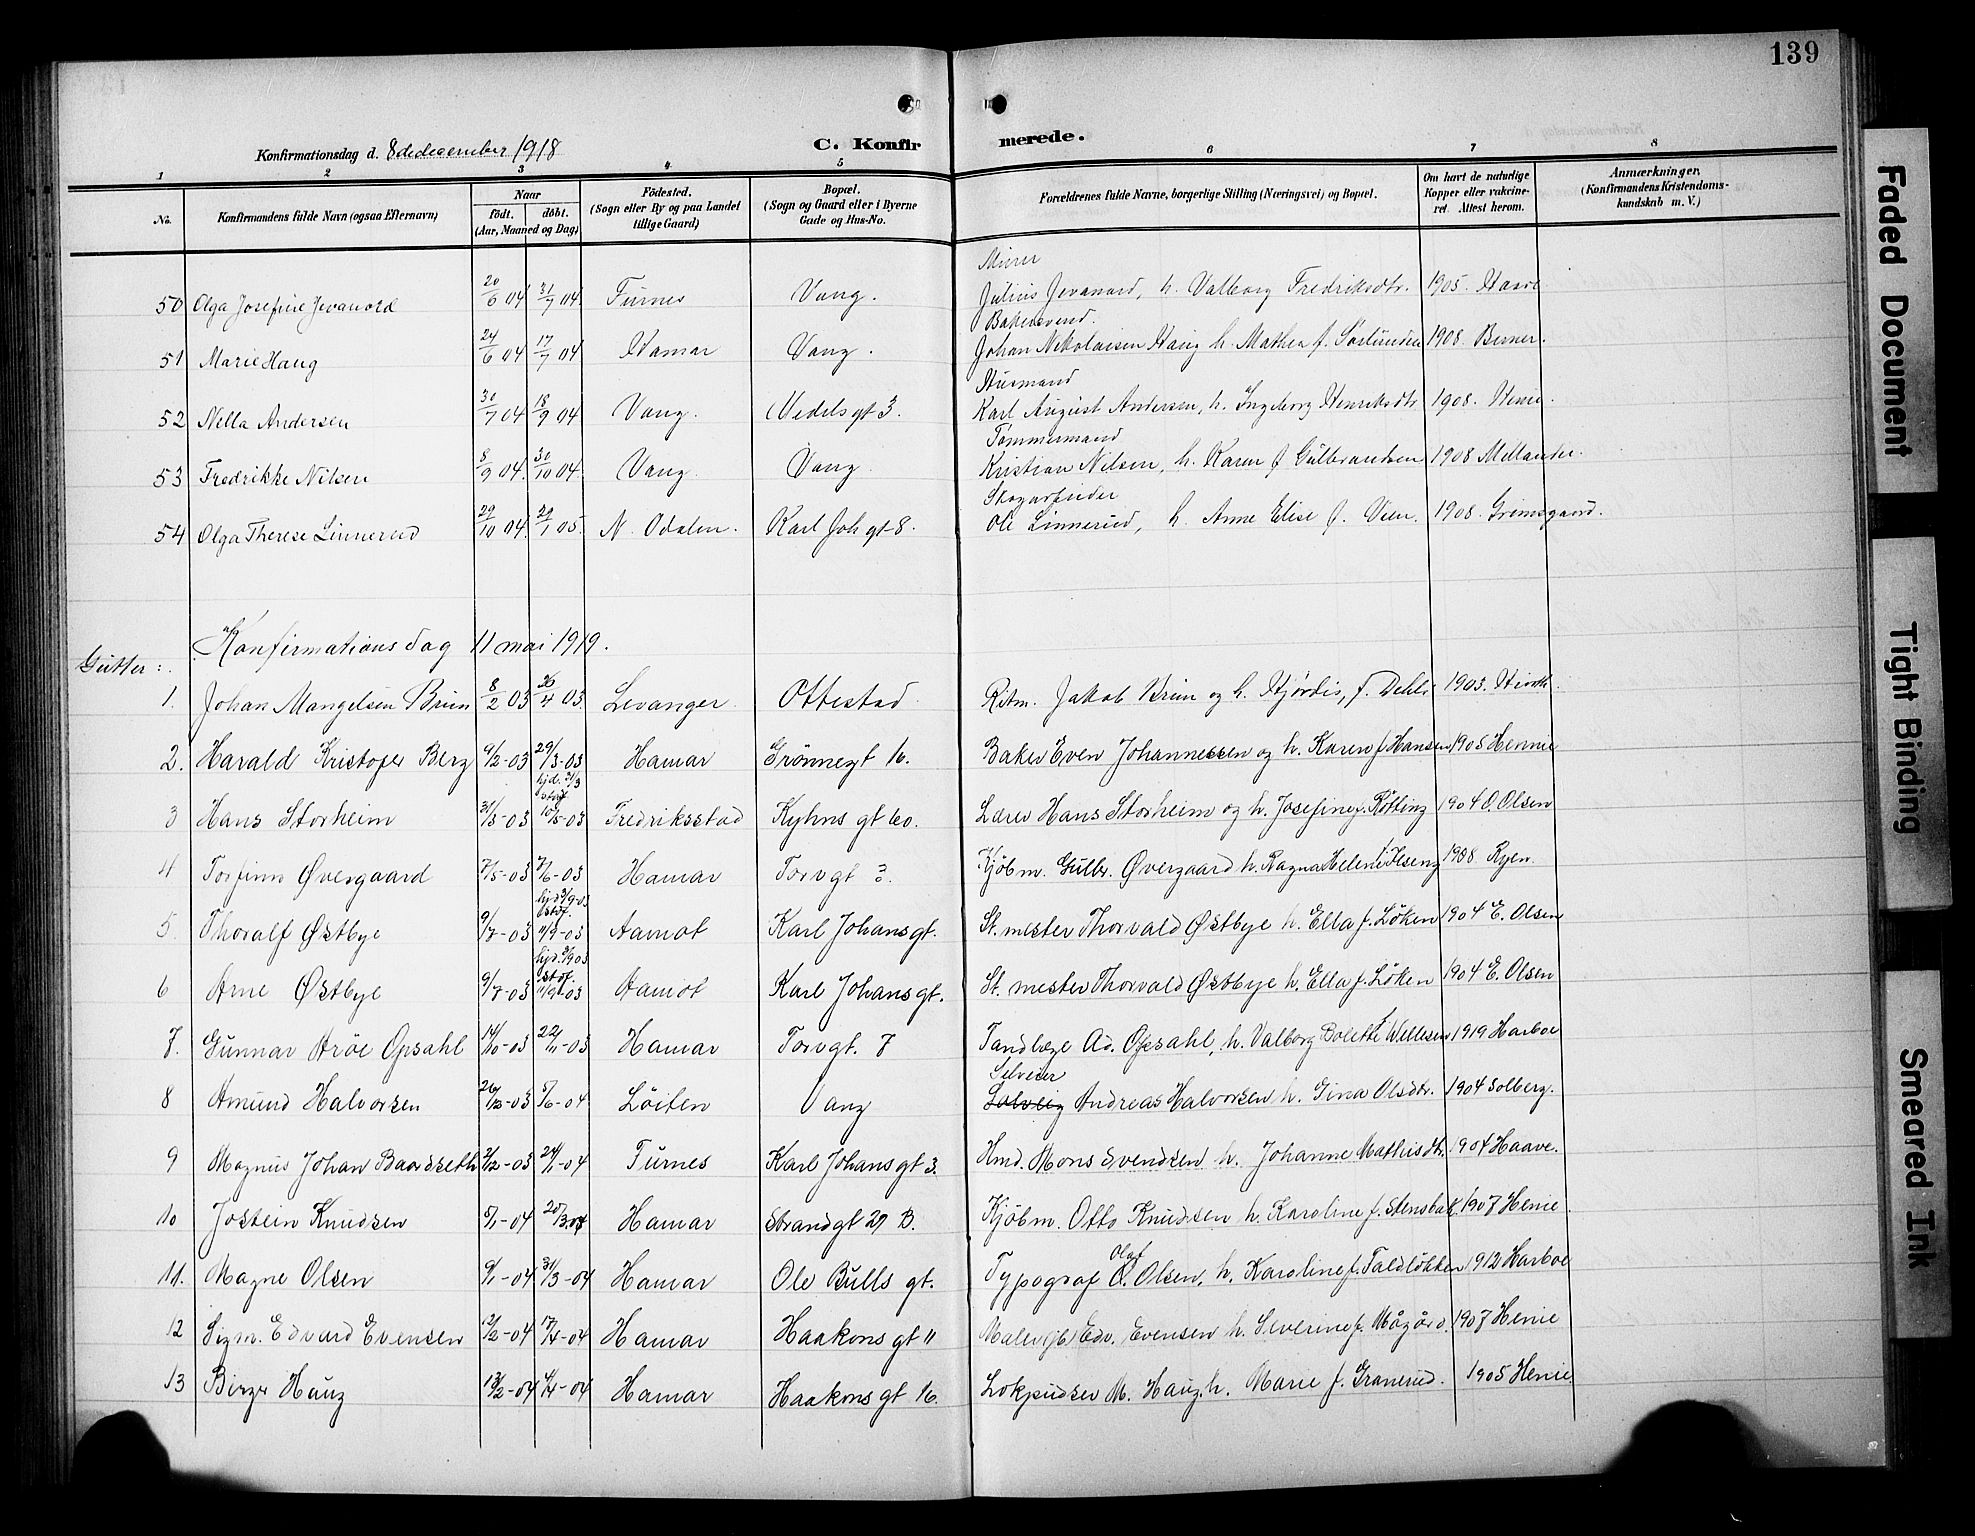 139
Konfirmationsdag d. 8de december 1918
C. Konfirmerede.
1 2 3 4 5 6 7 8
No. Konfirmandens fulde Navn (ogsaa Efternavn) Naar født. døbt. (Aar, Maaned og Dag) Fødested. (Sogn eller By og paa Landet tillige Gaard) Bopæl. (Sogn og Gaard eller i Byerne Gade og Hus-No. Forældrenes fulde Navne, borgerlige Stilling (Næringsvei) og Bopæl. Om havt de naturlige Kopper eller vakcineret. Attest herom. Anmærkninger (Konfirmandens Kristendomskundskab m. V.)
Murer
50 Olga Josefine Jevanord 20/6 04 31/7 04 Furnes Vang. Julius Jevanord, h. Valborg Fredriksdtr. 1905. Haave
Bakersvend.
51 Marie Haug 24/6 04 17/7 04 Hamar Vang. Johan Nikolaisen Haug h. Mathea f. Sørlunden 1908. Berner.
Husmand
52 Nella Andersen 30/7 04 18/9 04 Vang. Vedels gt 3. Karl August Andersen, h. Ingeborg Henriksdtr 1908. Henie.
Tømmermand
53 Fredrikke Nilsen 8/9 04. 30/10 04. Vang. Vang. Kristian Nilsen, h. Karen f Gulbrandsen 1908 Mellander.
Skogarbeider
54 Olga Therese Linnerud 29/10 04. 29/1 05. N. Odalen. Karl Joh gt 8. Ole Linnerud, h. Anne Elise f. Vien. 1908. Grimsgaard.
Konfirmationsdag 11 mai 1919.
Gutter:
1. Johan Mangelsen Brun 8/2 03 26/4 03. Levanger. Ottestad. Ritm. Jakob Brun og h. Hjørdis, f. Dehli 1903. Hirsth.
2. Harald Kristofer Berg 9/2-03 29/3-03 Hamar Grønnegt 16. Baker Even Johannessen og h. Karen f. Hansen 1905 Hennie
hjd. 31/3
stadf
3 Hans Storheim 31/3-03 10/5-03 Fredriksstad Kyhns gt 60. Lærer Hans Storheim og h. Josefine f. Røtting 1904 O. Olsen
4 Torfinn Øvergaard 7/5-03 7/6-03 Hamar Torvgt 3. Kjøbm. Gulbr. Øvergaard h. Ragna Helene f. Ilseng 1908 Ryen.
stdf.
5. Thoralf Østbye 9/7-03 11/9-03 Aamot Karl Johansgt. St. mester Thorvald Østbye h. Ella f. Løken 1904 E. Olsen
stdf.
6 Arne Østbye 9/7-03 11/9-03 Aamot Karl Johansgt. St. mester Thorvald Østbye h. Ella f. Løken 1904 E. Olsen
7. Gunnar Arøe Opsahl 14/10-03 22/11-03 Hamar Torvgt. 7 Tandlæge Ad. Opsahl, h. Valborg Bolette f. Willesen 1919 Harboe
Selveier
8 Amund Halvorsen 26/12-03 5/6-04 Løiten Vang Solveig Andreas Halvorsen h. Gina Olsdtr. 1904 Solberg.
9 Magnus Johan Baardseth 2/12-03 24/1-04 Furnes Karl Johans gt 3. Hmd. Mons Svendsen h. Johanne Mathisdtr. 1904 Haave.
10 Jostein Knudsen 5/1-04 20/3 04 Hamar Strandgt 27 B. Kjøbm. Otto Knudsen h. Karoline f. Stensbak. 1907 Henie.
Olaf
11. Magne Olsen 9/1-04 31/3-04 Hamar Ole Bulls gt. Typograf O. Olsen, h. Karoline f. Taldløkken 1912 Harboe
12 Sigm. Edvard Evensen 12/2-04 17/4-04 Hamar Haakons gt 11 Maler (jb) Edv. Evensen h. Severine f. Mågård. 1907 Henie
13 Birger Haug 13/2-04 4/4-04 Hamar Haakons gt 16. Lokpudser M. Haug, h. Marie f. Granerud. 1905 Henie
Faded Document
Tight Binding
Smeared Ink